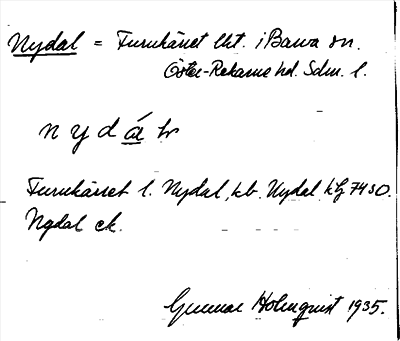 Nydal = Furukärret lht. i Barva sn.
Öster-Rekarne hd. Sdm. l.
n y d á
Furukärret l. Nydal, kb. Nydal, 7430.
Nydal ek.
Gunnar Holmquist 1935.